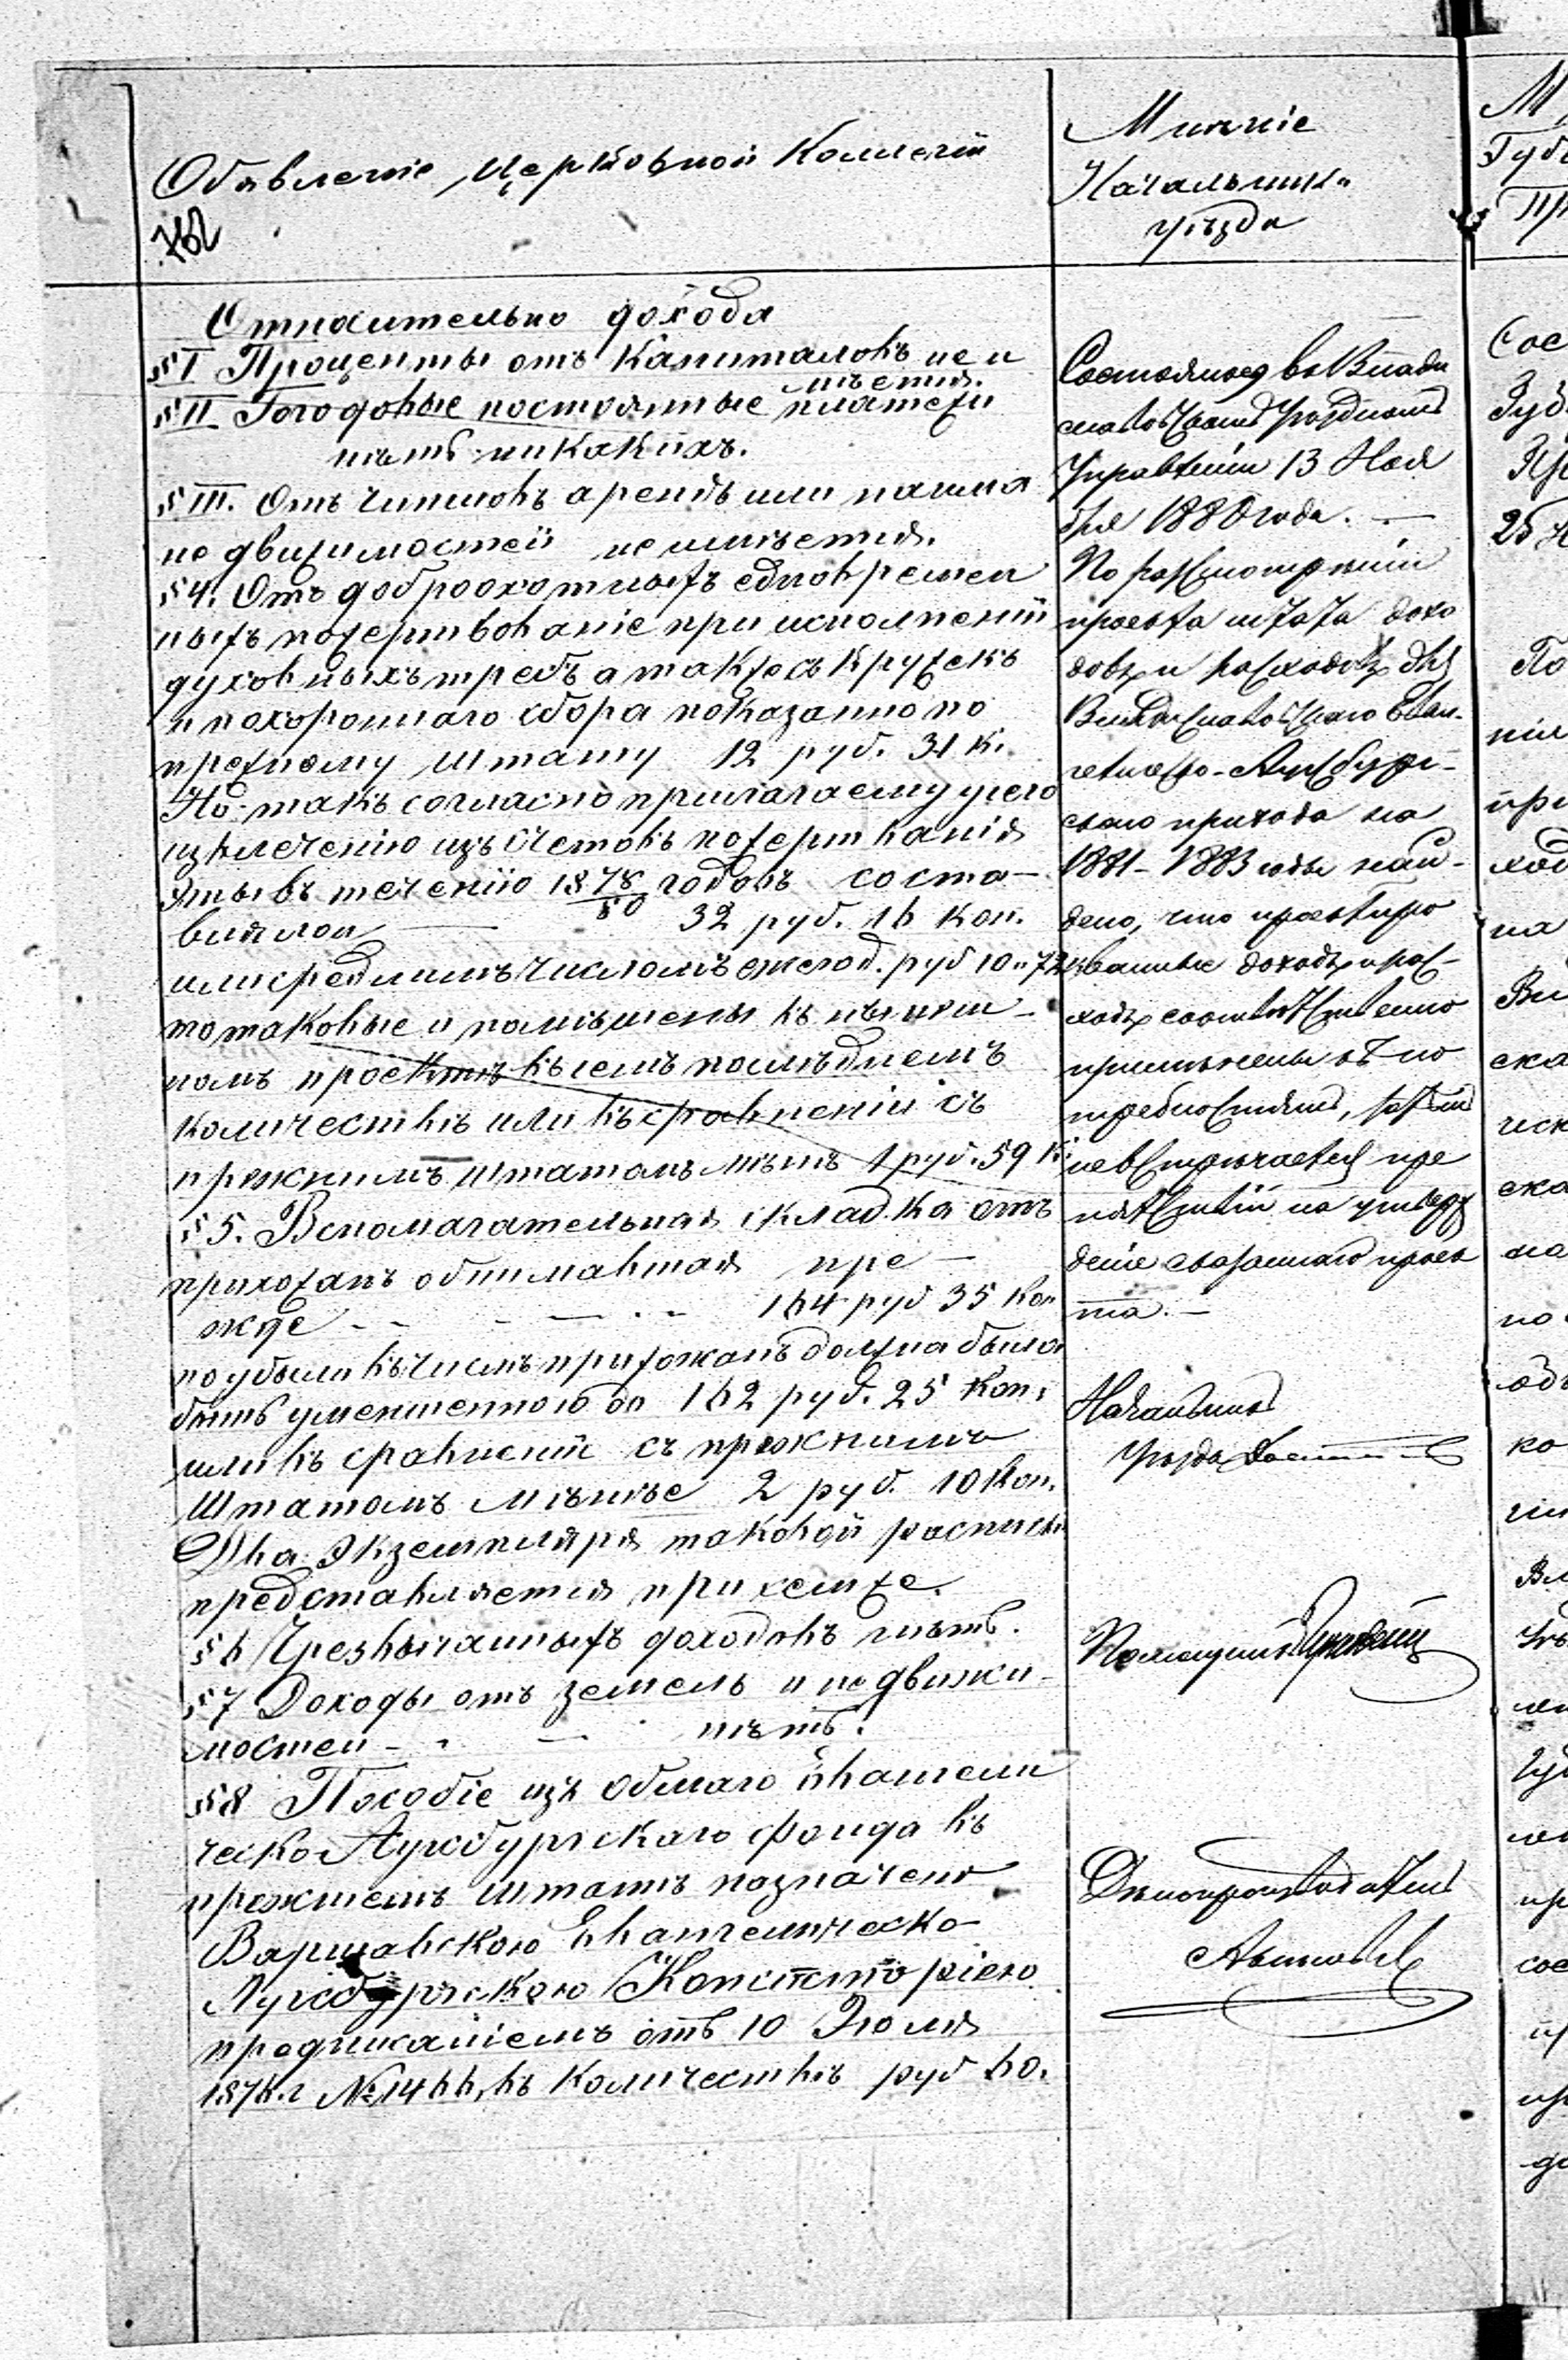 Обявленіе Церковной Коллегіи
Относительно дохода
§ I Проценты отъ Капиталовъ не и
мѣется.
§ II Гогодовые постоянные платежи
нѣтъ никакихъ.
§ III. Отъ чиншовъ арендъ или найма
не движимостей не имѣется.
§ 4. Отъ доброохотныхъ едновремен
ныхъ пожертвованіе при исполненіи
духовныхъ требъ а также съ Кружекъ
и похороннаго сбора показанно по
прежнему штату 12 руб. 31 к.
Но такъ согласно прилагаемому у сего
извлеченію изъ счетовъ пожертванія
эты въ теченію 1878/80 годовъ соста-
вили 32 руб. 16 коп.
или среднимъ числомъ ежегод. руб 10 72
то таковые и помѣщены въ нынѣш-
номъ проектѣ въ семъ послѣднемъ
количествѣ или въ сравненіи съ
прежнимъ штатомъ мѣнѣ 1 руб. 59 к.
§ 5. Вспомагательная складка отъ
прихожанъ обнимавшая пре-
жде 164 руб 35 коп
по убыли въ числѣ прихожанъ должна была
быть уменшенною до 162 руб. 25 коп.
или въ сравненіи съ прежнимъ
Штатомъ мѣньше 2 руб. 10 коп.
Два Экземпляра таковой росписки
представляется при семже.
§ 6 Чрезвычайныхъ доходовъ нѣтъ.
§ 7 Доходы отъ земель и недвижи-
мостей - нѣтъ.
§ 8 Пособіе изъ общаго Евангели
ческо Аугсбургскаго фонда въ
прежнемъ штатѣ назначено
Варшавскою Евангелическо-
Аугсбургскою Консисторіею
предписаніемъ отъ 10 Іюля
1878 г № 1466, въ количествѣ руб 60.
Мнѣніе
Начальника
уѣзда
Состоялось во Влади
славовскомъ Уѣздномъ
Управленіи 13 Ноя
бря 1880 года. —
По разсмотрѣніи
проекта штата дохо
довъ и расходовъ для
Владиславовскаго Еван-
гелическо-Аугсбург-
скаго прихода на
1881-1883 годы най-
дено, что проектиро
ванные доходы и рас-
ходы соотвѣтственно
примѣнены къ по
требностямъ, затѣмъ
невстрѣчается пре
пятствій на утверж
деніе сказаннаго проек
та. —
Начальникъ
Уѣзда
Помощникъ
Дѣлопроизводитель
М
Губе
Пр
Сос
Губ
Пр
25 н
По
нія
при
ход
на
Вл
ска
ческ
ска
на
по
ко
Вл
Уѣ
Губ
пр
сос
пр
пр